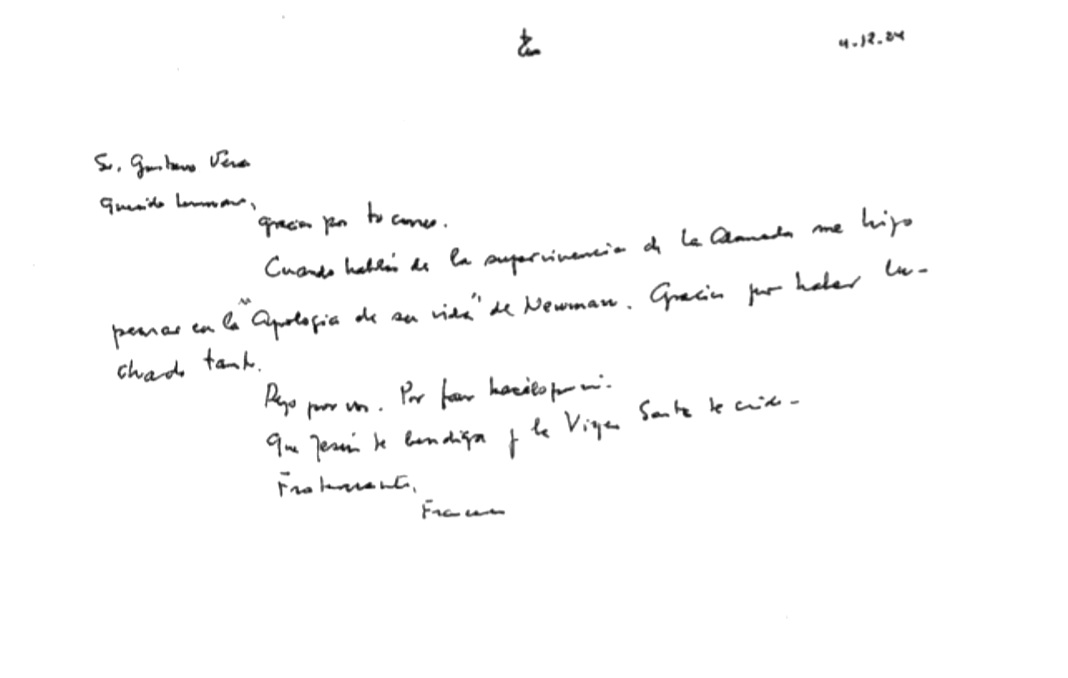 4.12.24
Sr. Gustavo Vera
Querido hermano,
gracias por tu correo.
Cuando hablás de la supervivencia de la Alameda me hizo
pensar en la "Apologia de su vida" de Newman. Gracias por haber lu-
chado tanto.
Rezo por vos. Por favor hacelo por mí.
Que Jesús te bendiga y la Virgen Santa te cuide.
Fraternalmente,
Francisco